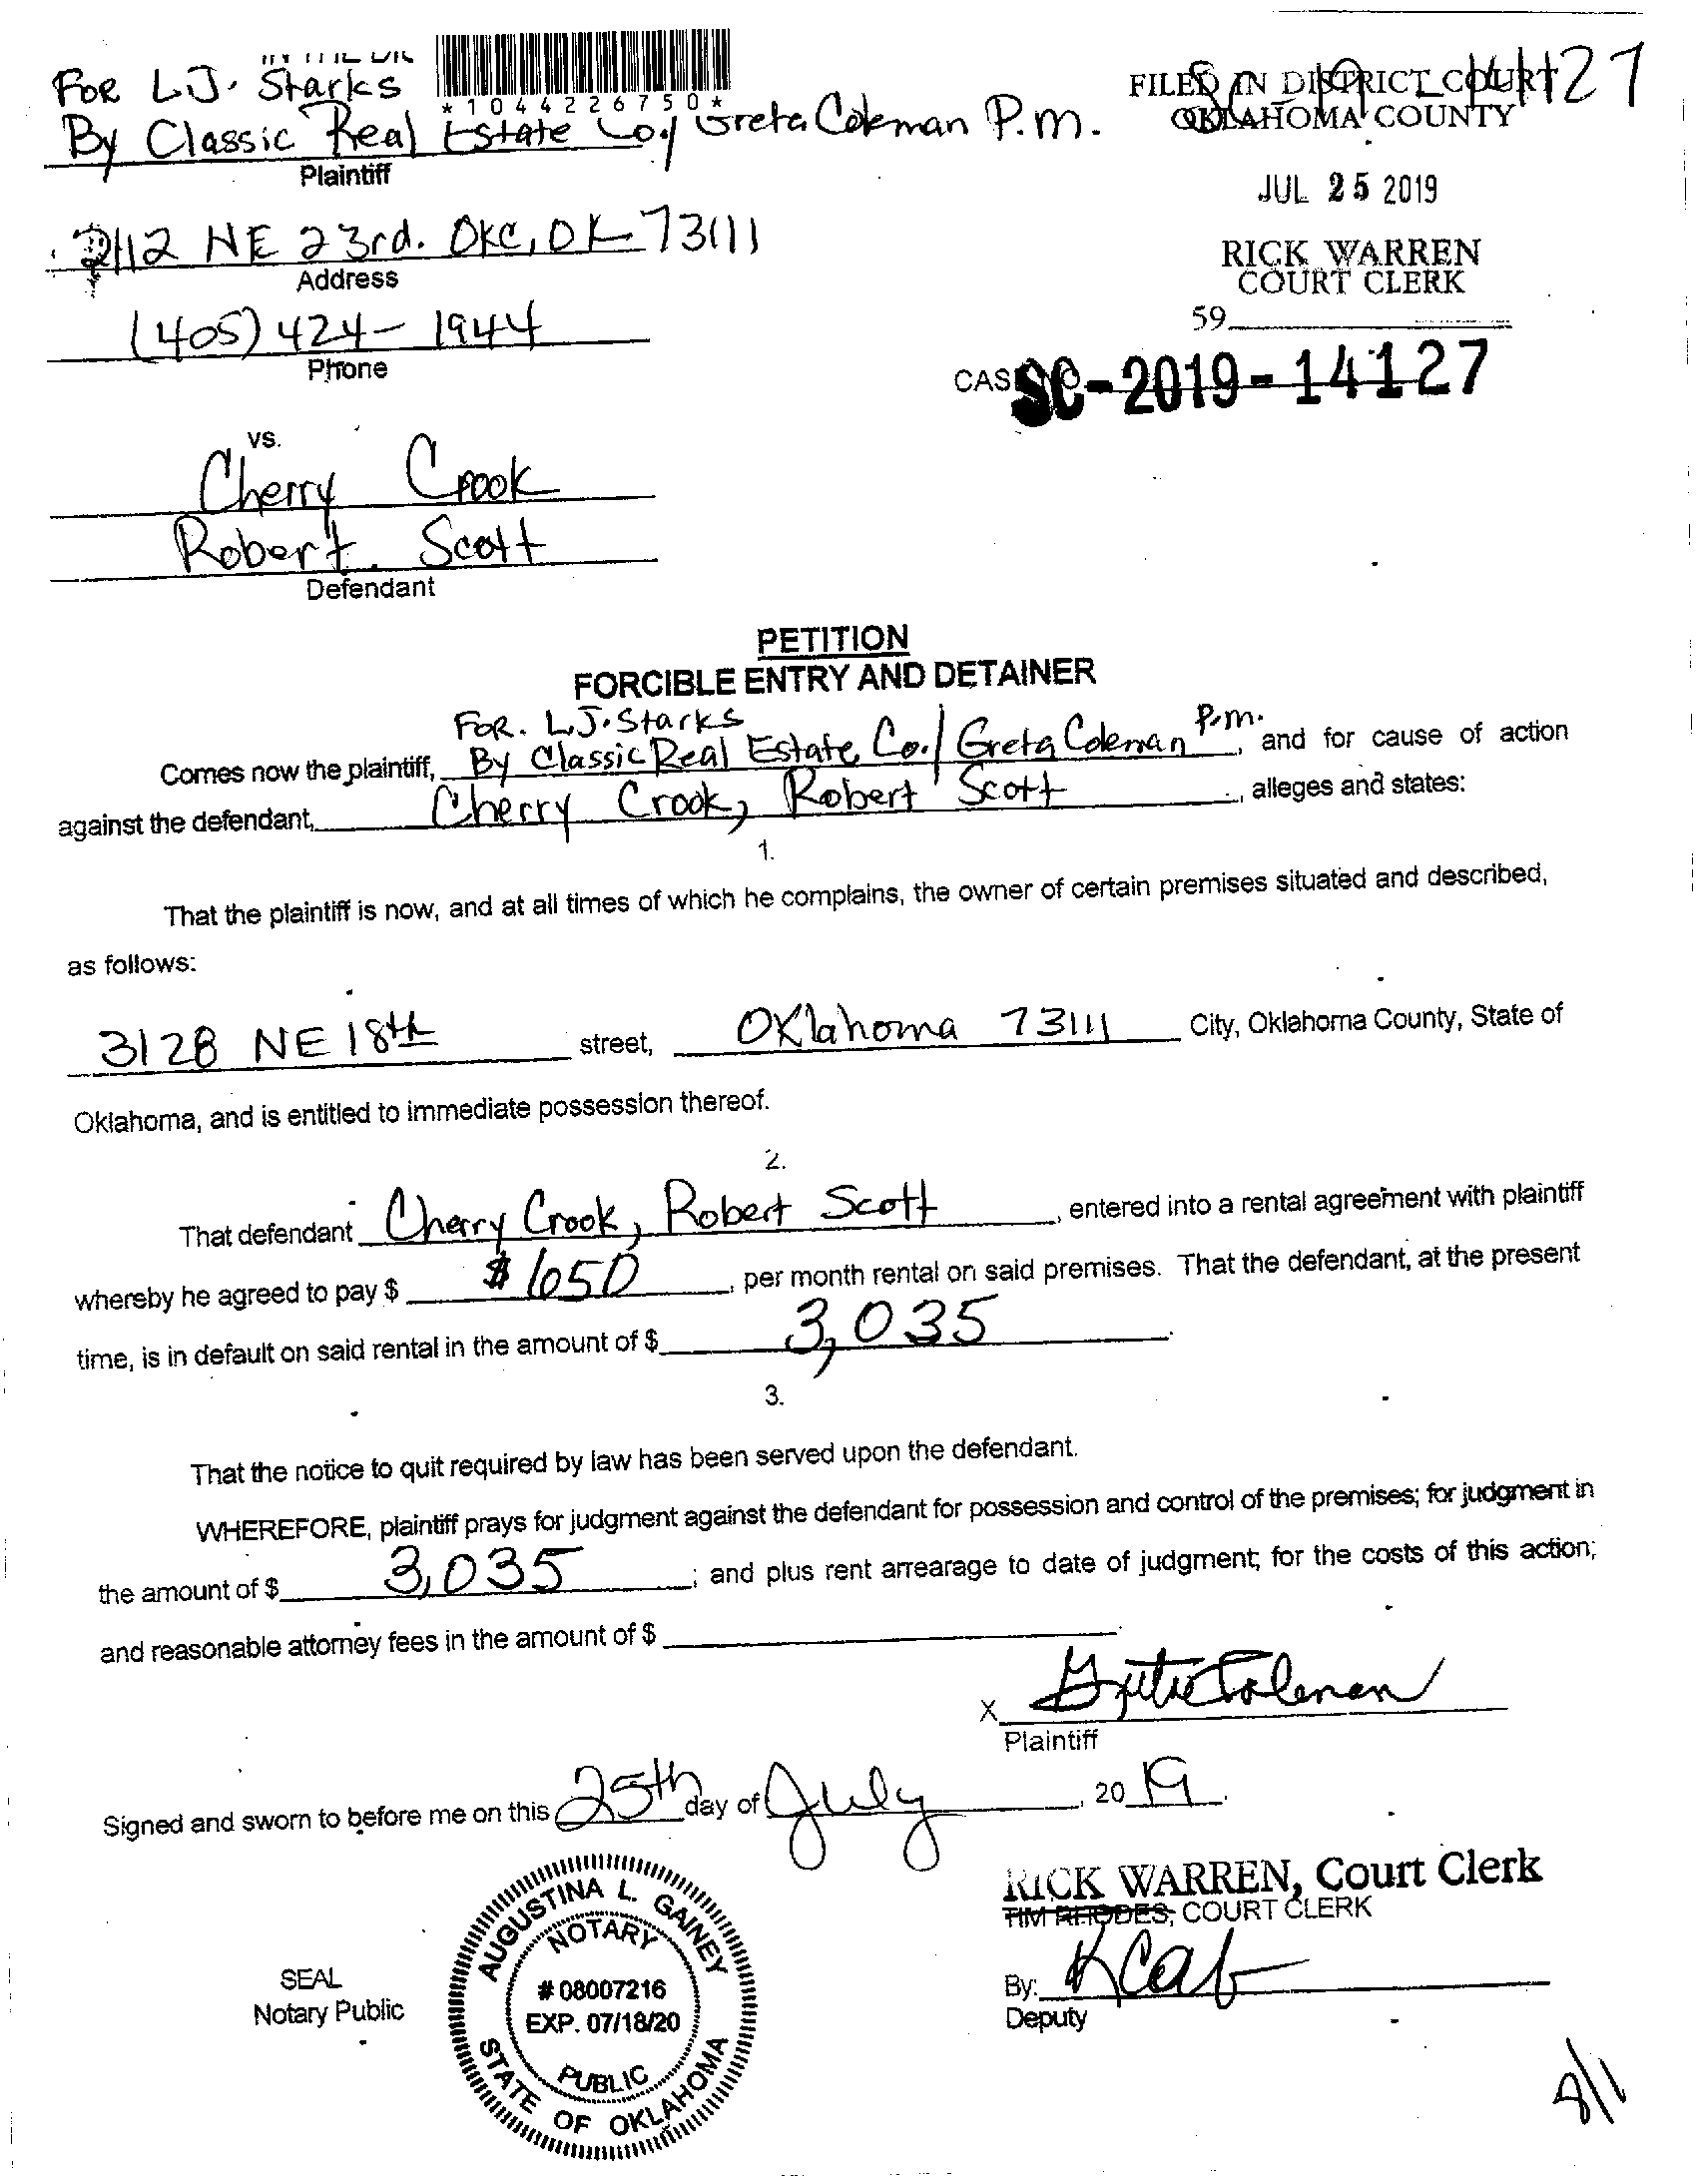 IN THE DIS
FOR L.J. Starks
*1044226750*
By Classic Real Estate Co./ Greta Coleman P.m.
Plaintiff
2112 NE 23rd. OKC, OK 73111
Address
(405) 424-1944
Phone
SC-19-14127
FILED IN DISTRICT COURT
OKLAHOMA COUNTY
JUL 25 2019
RICK WARREN
COURT CLERK
59
CASE NO. SC-2019-14127
vs.
Cherry Crook
Robert Scott
Defendant
PETITION
FORCIBLE ENTRY AND DETAINER
FOR. L.J. Starks
Comes now the plaintiff, By Classic Real Estate Co./ Greta Coleman P.m., and for cause of action
against the defendant, Cherry Crook, Robert Scott, alleges and states:
1.
That the plaintiff is now, and at all times of which he complains, the owner of certain premises situated and described,
as follows:
3128 NE 18th street, Oklahoma 73111 City, Oklahoma County, State of
Oklahoma, and is entitled to immediate possession thereof.
2.
That defendant Cherry Crook, Robert Scott, entered into a rental agreement with plaintiff
whereby he agreed to pay $ $ 650, per month rental on said premises. That the defendant, at the present
time, is in default on said rental in the amount of $ 3,035.
3.
That the notice to quit required by law has been served upon the defendant.
WHEREFORE, plaintiff prays for judgment against the defendant for possession and control of the premises; for judgment in
the amount of $ 3,035; and plus rent arrearage to date of judgment; for the costs of this action;
and reasonable attorney fees in the amount of $
X Greta Coleman
Plaintiff
Signed and sworn to before me on this 25th day of July, 2019.
RICK WARREN, Court Clerk
TIM RHODES, COURT CLERK
AUGUSTINA L. GAINEY
NOTARY
# 08007216
EXP. 07/18/20
PUBLIC
STATE OF OKLAHOMA
SEAL
Notary Public
By:
Deputy
8/1